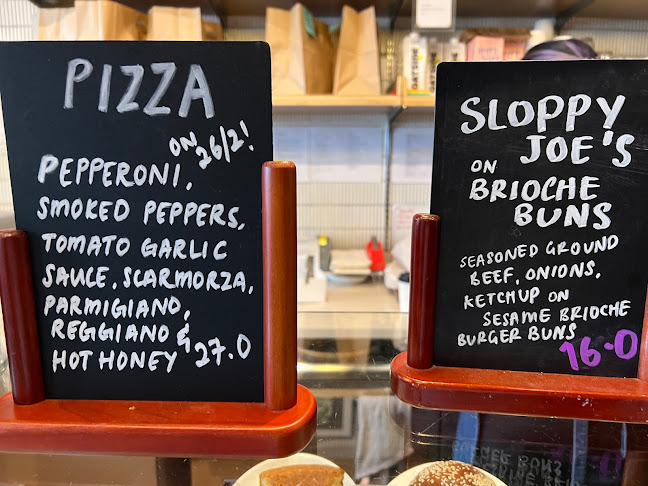 PIZZA
ON
26/2!
PEPPERONI,
SMOKED PEPPERS,
TOMATO GARLIC
SAUCE, SCARMORZA,
PARMIGIANO,
REGGIANO &
HOT HONEY 27.0
SLOPPY
JOE'S
ON
BRIOCHE
BUNS
SEASONED GROUND
BEEF, ONIONS,
KETCHUP ON
SESAME BRIOCHE
BURGER BUNS
16.0
OATSIDE